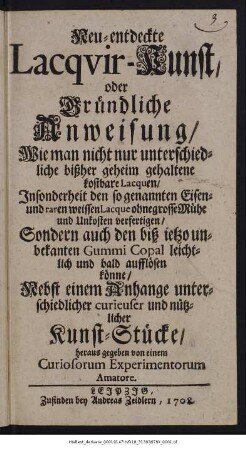 3
Neu-entdeckte
Lacqvir-Kunst/
oder
Gründliche
Anweisung/
Wie man nicht nur unterschied-
liche bißher geheim gehaltene
kostbare Lacquen/
Insonderheit den so genannten Eisen-
und raren weissen Lacque ohne grosse Mühe
und Unkosten verfertigen/
Sondern auch den biß ietzo un-
bekanten Gummi Copal leicht-
lich und bald aufflösen
könne/
Nebst einem Anhange unter-
schiedlicher curieuser und nütz-
licher
Kunst-Stücke/
heraus gegeben von einem
Curiosorum Experimentorum
Amatore.
LEIPZIG,
Zufinden bey Andreas Zeidlern, 1708